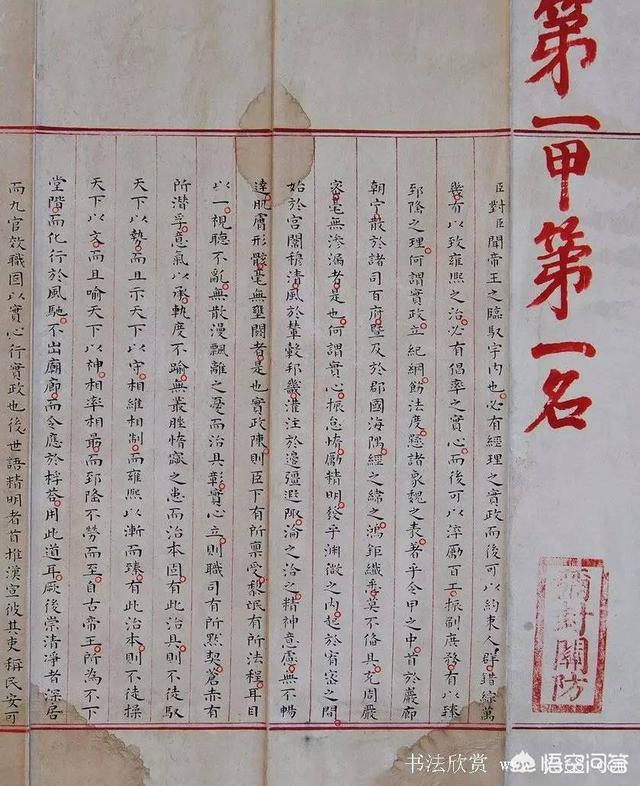 第一甲第一名
彌封關防
臣對臣聞帝王之臨馭宇內也必有經理之實政而後可以約束人群錯綜萬
幾有以致雍熙之治必有倡率之實心而後可以淬勵百工振刷庶務有以臻
郅隆之理何謂實政立紀綱飭法度懸諸象魏之表著乎令甲之中首於巖廊
朝宁散於諸司百府暨及於郡國海隅經之緯之鴻鉅纖悉莫不備具充周嚴
密毫無滲漏者是也何謂實心振怠惰勵精明發乎淵微之內起於宥密之間
始於宮闈穆清風於輦轂邦畿灌注於邊疆遐陬淪之洽之精神意慮無不暢
達肌膚形骸毫無壅閼者是也實政陳則臣下有所稟受黎氓有所法程耳目
以一視聽不亂無散漫飄離之憂而治具彰實心立則職司有所默契蒼赤有
所潛孚意氣以承軌度不踰無叢脞惰窳之患而治本固有此治具則不徒馭
天下以勢而且示天下以守相維相制而雍熙以漸而臻有此治本則不徒操
天下以文而且喻天下以神相率相勗而郅隆不勞而至自古帝王所為不下
堂階而化行於風馳不出廟廊而令應於桴答用此道耳厥後崇清淨者深居
而九官效職固以實心行實政也後世語精明者首推漢宣彼其吏稱民安可
书法欣赏
悟空问答